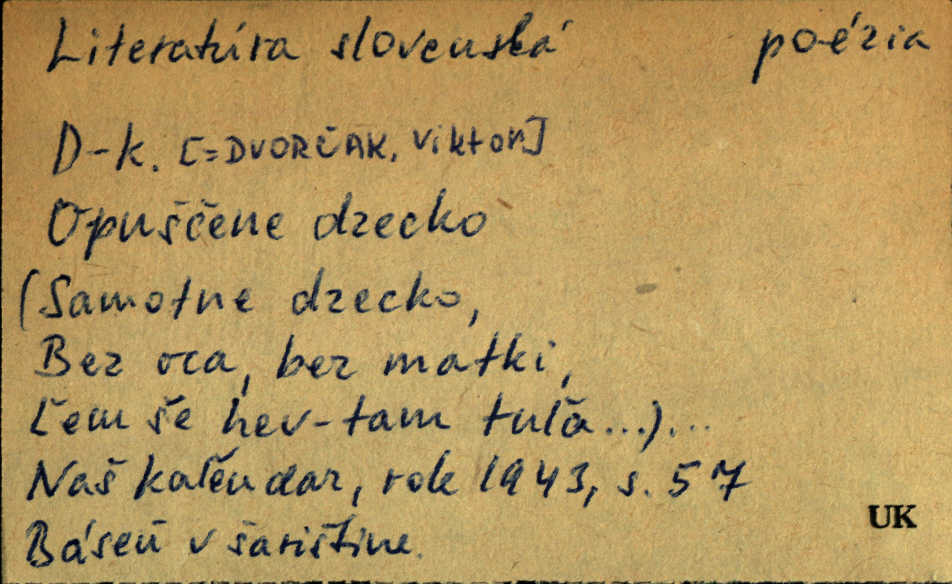 Literatúra slovenská poézia
D-k. [=DVORČÁK, Viktor]
Opuščene dzecko
(Samotne dzecko,
Bez oca, bez matki,
Ľem še hev-tam tuľa...)...
Naš kaľendar, rok 1943, s. 57
UK
Báseň v šarištine.